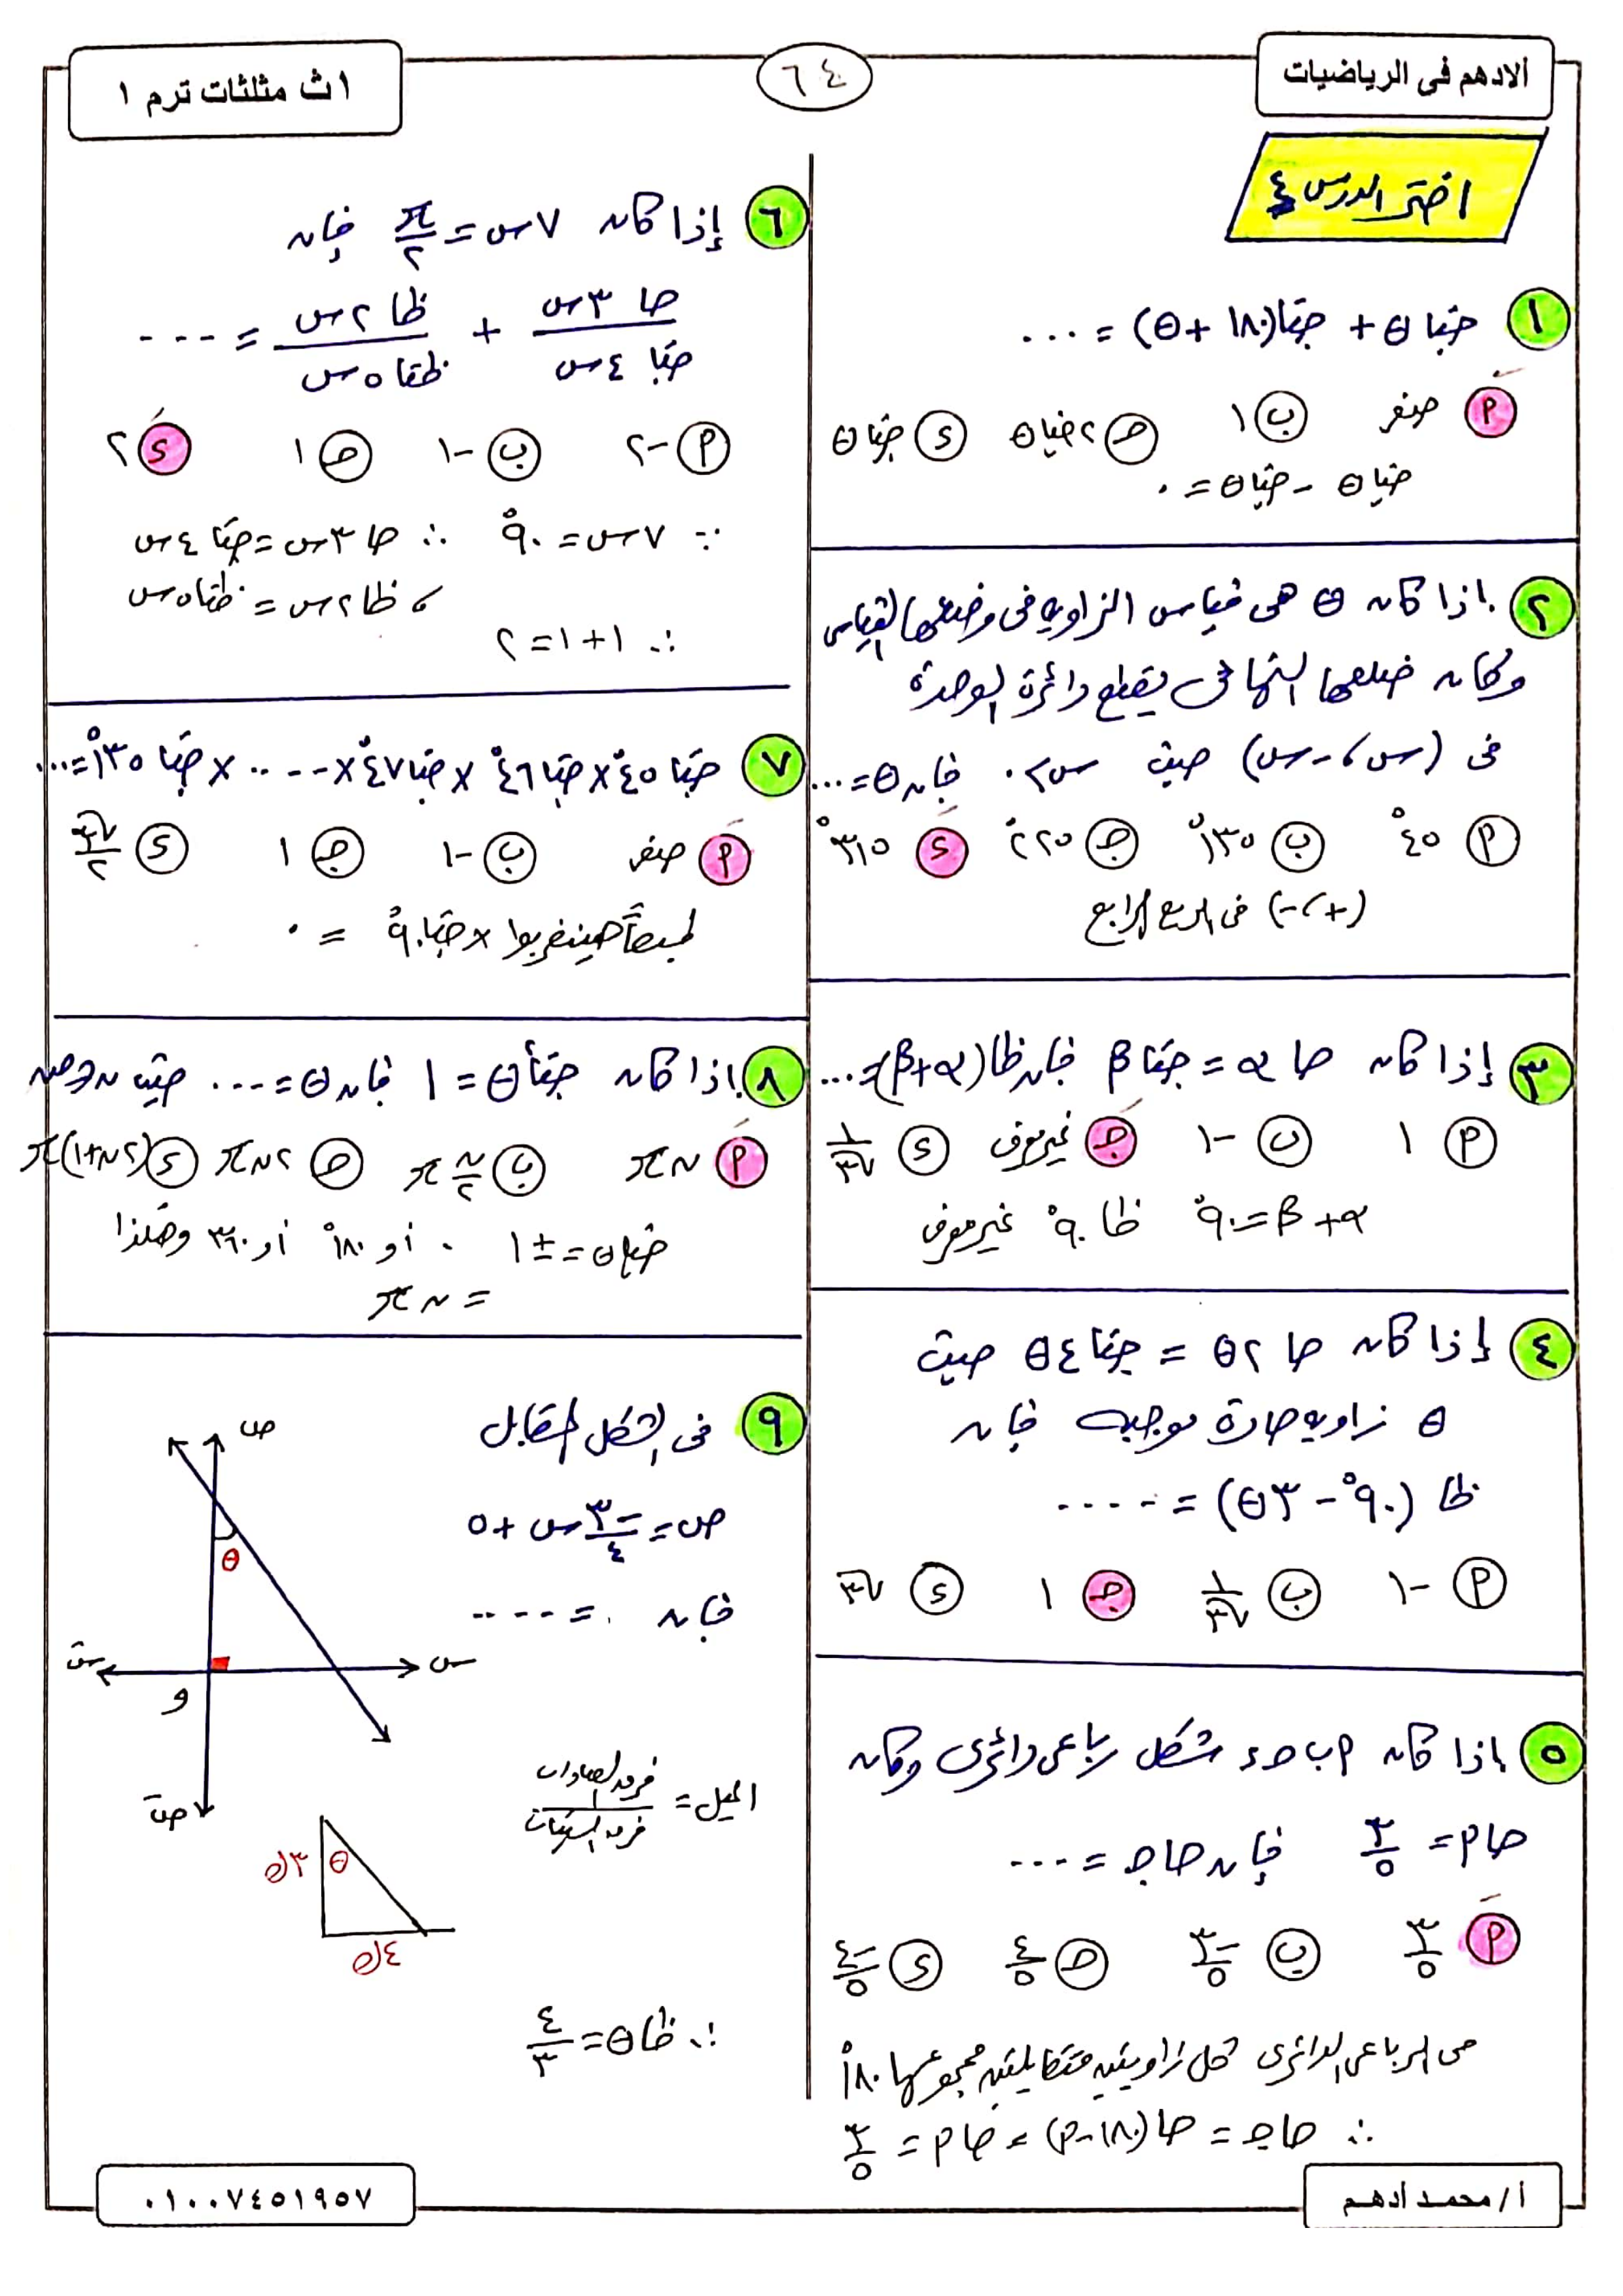 الادهم فى الرياضيات
٦٤
١ث مثلثات ترم ١
اختر الدرس ٤
١ جتا θ + جتا(١٨٠ + θ) = ...
أ صفر ب ١ ج ٢ جتا θ د جتا θ
جتا θ - جتا θ = ٠
٢ إذا كان θ هى قياس الزاوية فى وضعها القياسى
وكان ضلعها النهائى يقطع دائرة الوحدة
فى (س ، -س) حيث س > ٠ فإن θ = ...
أ ٤٥° ب ١٣٥° ج ٢٢٥° د ٣١٥°
(+ ، -) فى الربع الرابع
٣ إذا كان حا α = جتا β فإن ظا(α + β) = ...
أ ١ ب -١ ج غير معرف د ١/√٣
α + β = ٩٠° ظا ٩٠° غير معرف
٤ إذا كان حا ٢θ = جتا ٤θ حيث
θ زاوية حادة موجبة فإن
ظا (٩٠° - ٣θ) = .....
أ -١ ب ١/√٣ ج ١ د √٣
٥ إذا كان أ ب ج د شكل رباعى دائرى وكان
حا أ = ٣/٥ فإن حا ج = ....
أ ٣/٥ ب -٣/٥ ج ٤/٥ د -٤/٥
فى الرباعى الدائرى كل زاويتين متقابلتين مجموعها ١٨٠°
∴ حا ج = حا(١٨٠ - أ) = حا أ = ٣/٥
٦ إذا كان ٧س = π/٢ فإن
حا ٣س / جتا ٤س + ظا ٢س / ظتا ٥س = ....
أ -٢ ب -١ ج ١ د ٢
∵ ٧س = ٩٠° ∴ حا ٣س = جتا ٤س
، ظا ٢س = ظتا ٥س
∴ ١ + ١ = ٢
٧ جتا ٤٥° × جتا ٤٦° × جتا ٤٧° × .... × جتا ١٣٥° = ...
أ صفر ب -١ ج ١ د √٣/٢
طبعاً هينضربوا × جتا ٩٠° = ٠
٨ إذا كان جتا²θ = ١ فإن θ = .... حيث ن ∈ ص
أ ن π ب ن/٢ π ج ٢ن π د (٢ن + ١) π
جتا θ = ± ١ ٠ أو ١٨٠° أو ٣٦٠ وهكذا
= ن π
٩ فى الشكل المقابل
ص = -٣/٤ س + ٥
فإن = .....
ص
θ
س
سَ
و
صَ
الميل = فرق الصادات / فرق السينات
٣ك
θ
٤ك
∴ ظا θ = ٤/٣
أ / محمد أدهم
٠١٠٠٧٤٥١٩٥٧